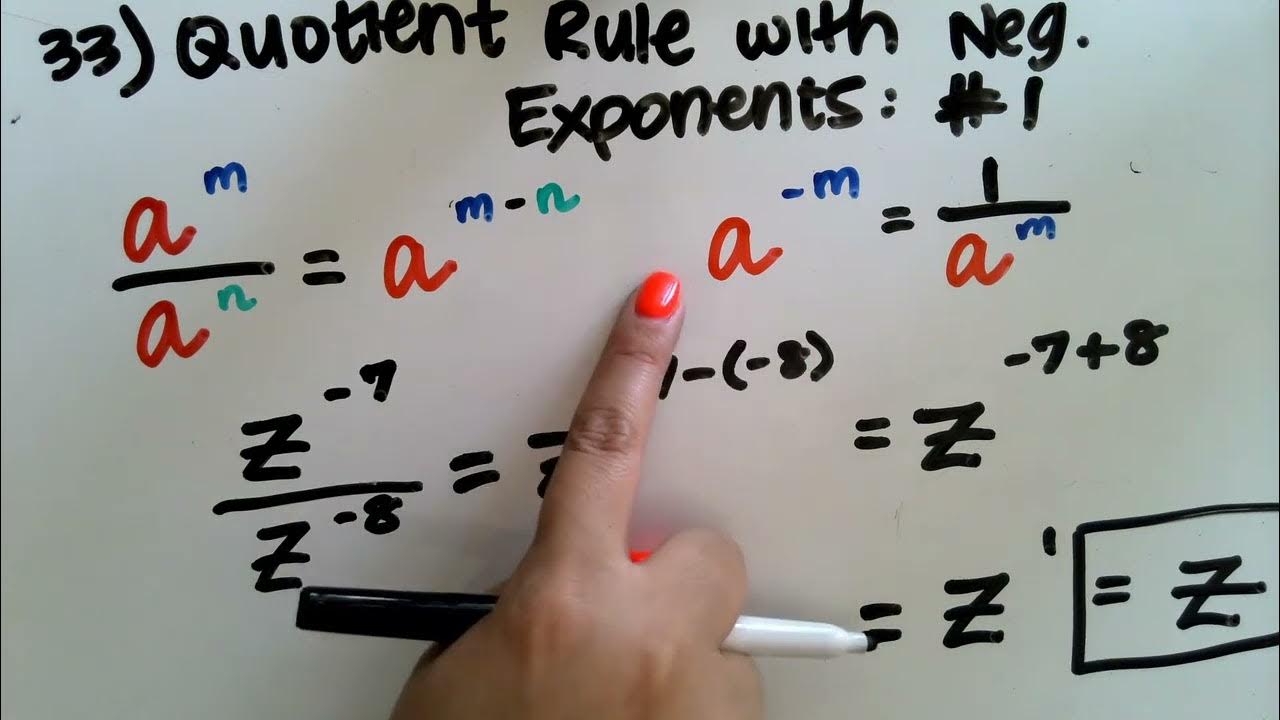 33) Quotient Rule with Neg.
Exponents: #1
a^m / a^n = a^(m-n)
a^(-m) = 1 / a^m
z^(-7) / z^(-8) = -(-8) = z^(-7+8)
= z^1 = z